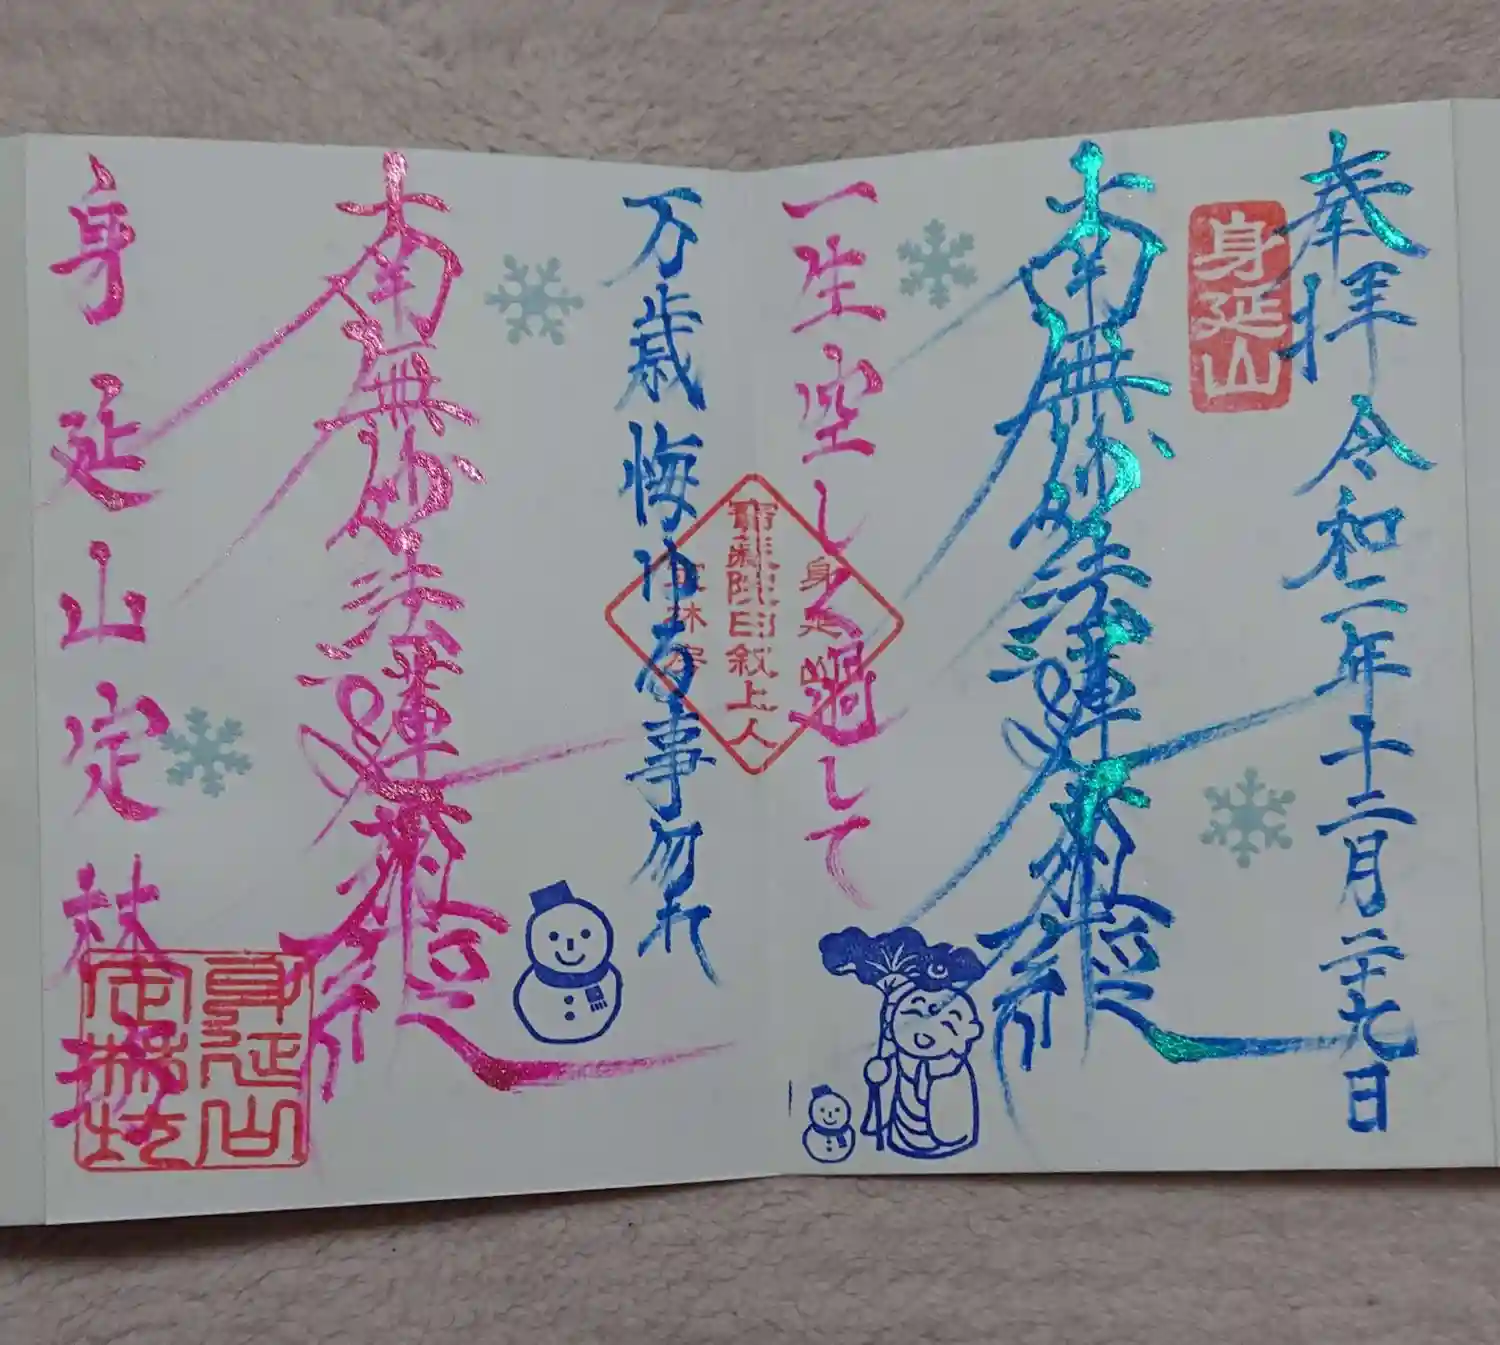 奉拝 令和二年十二月二十九日
身延山
南無妙法蓮華経
一生空しく過して
身延山
寳蔵院日叙上人
定林房
万歳悔ゆる事勿れ
南無妙法蓮華経
身延山定林坊
身延山
定林坊